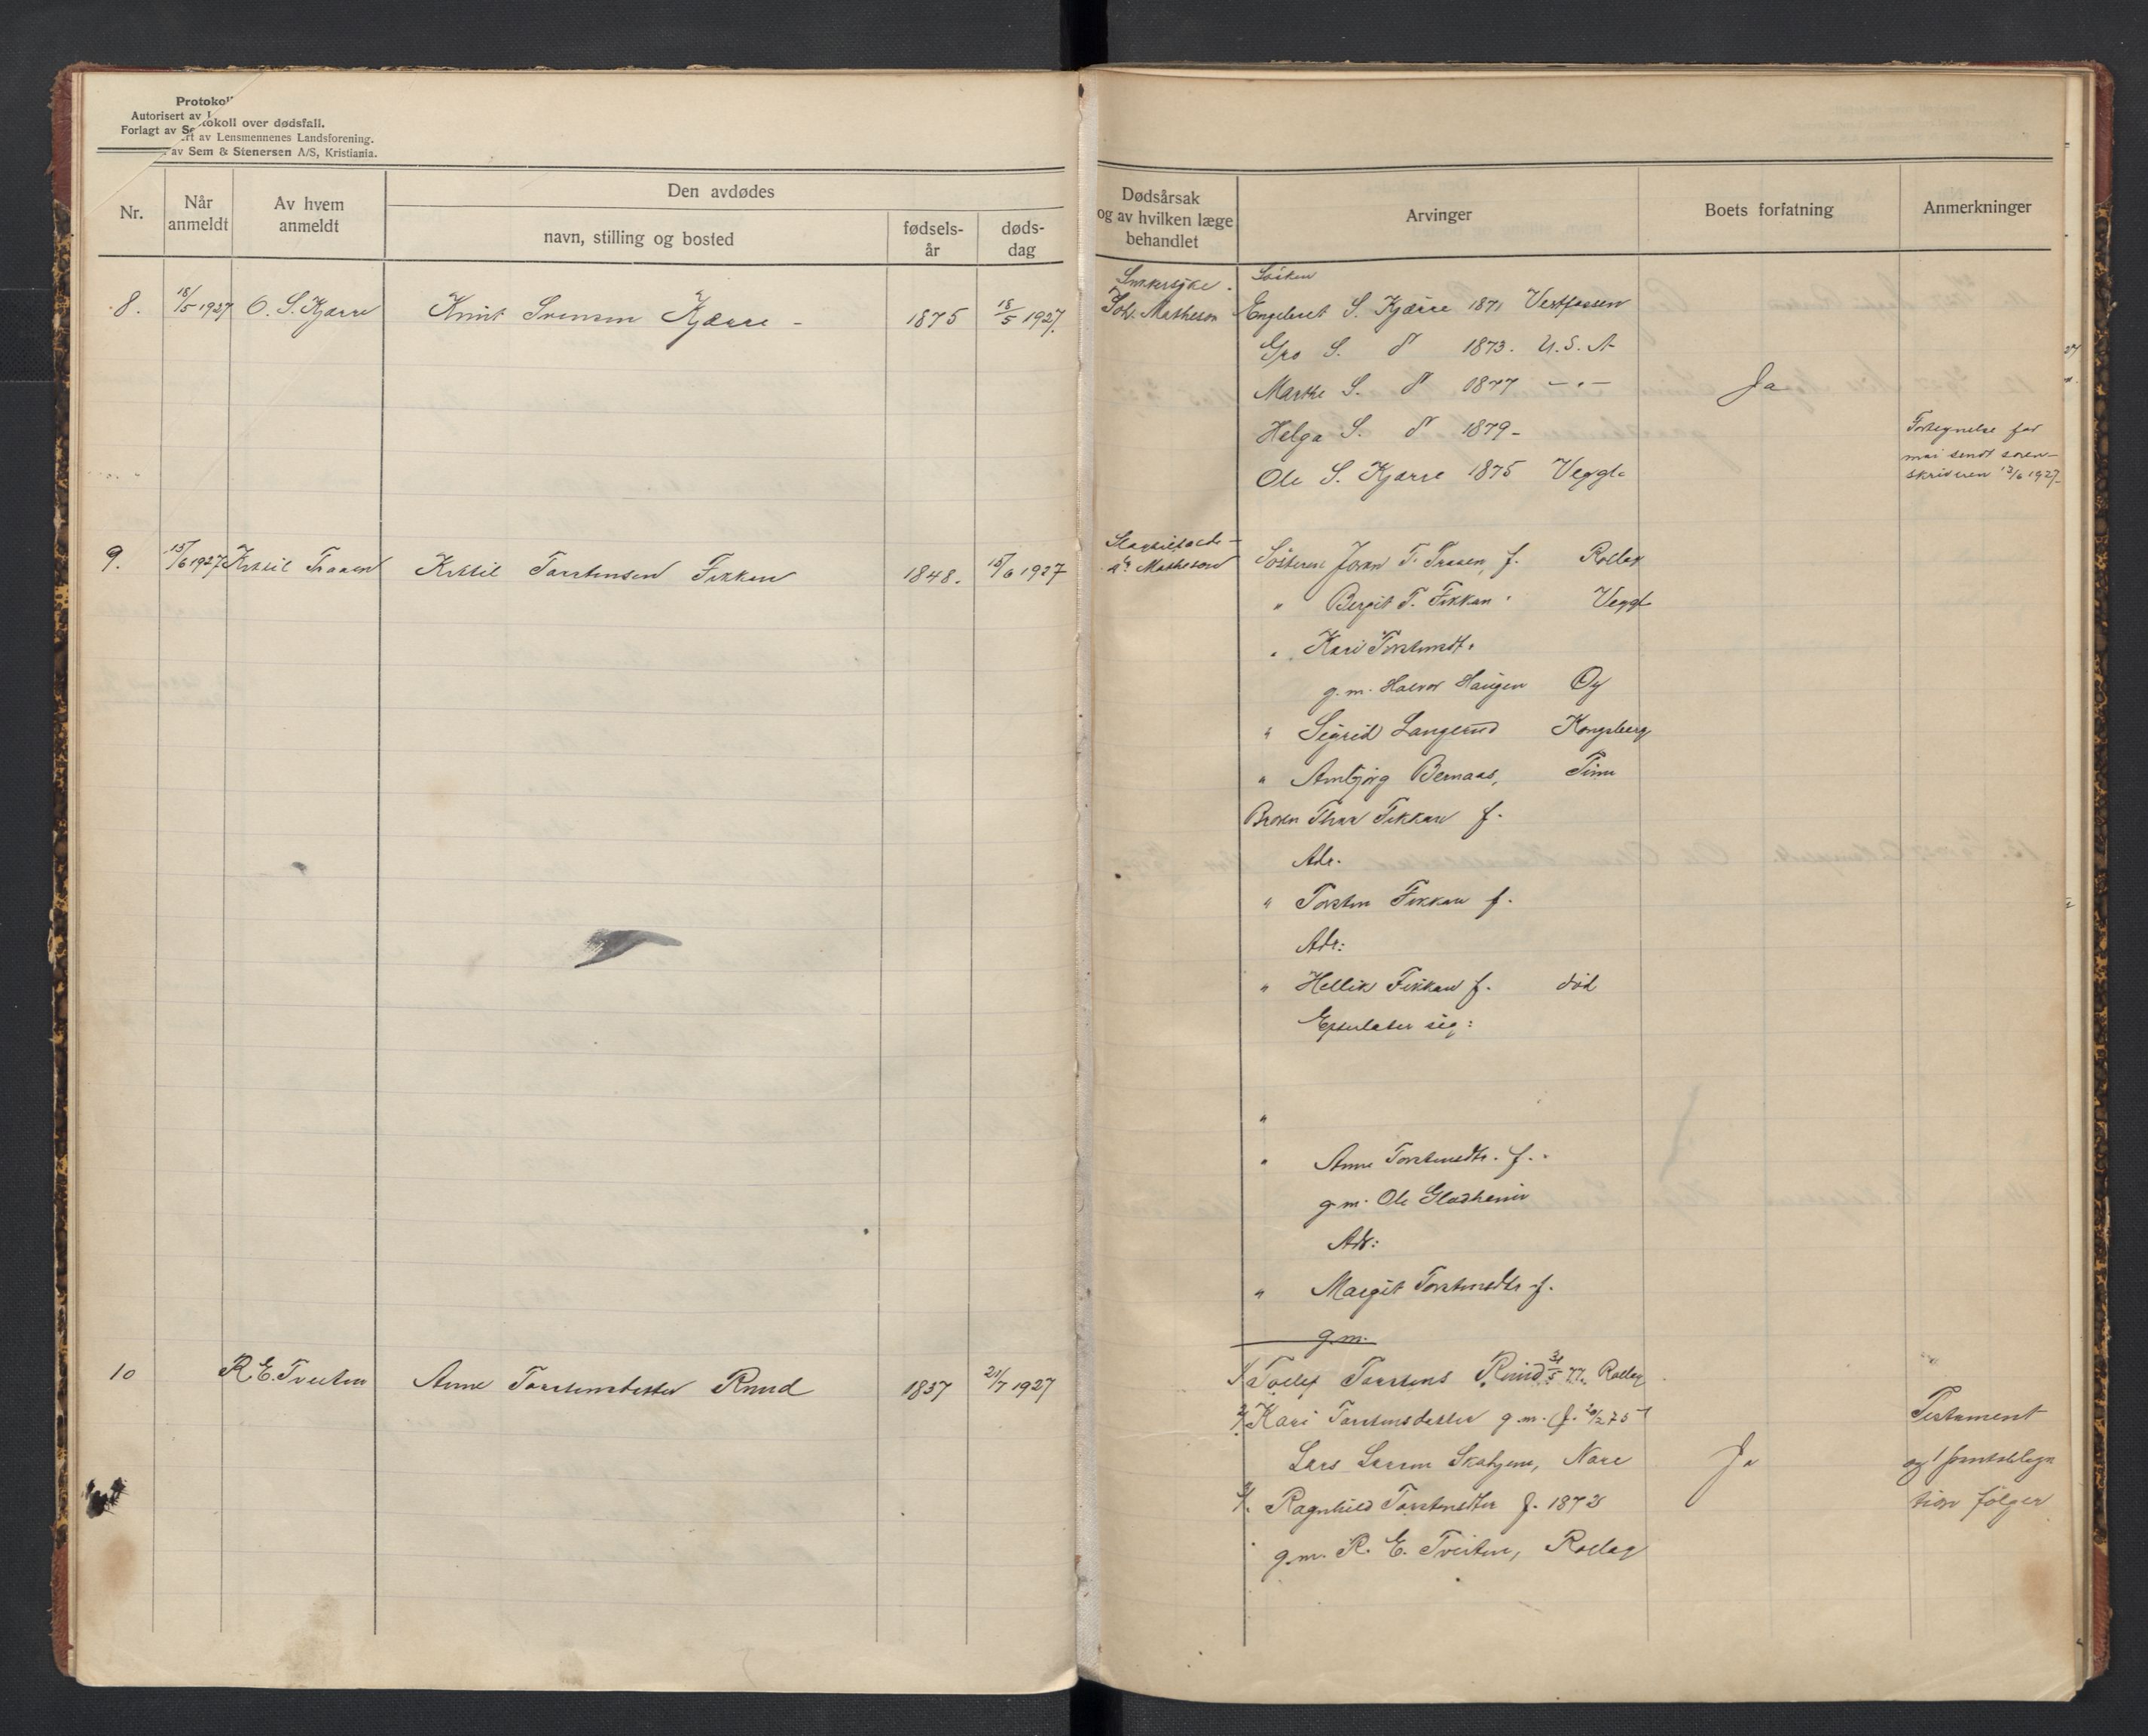 Protokoll over dødsfall.
Autorisert av Lensmennenes Landsforening.
Forlagt av Sem & Stenersen A/S, Kristiania.
Den avdødes
Nr.
Når anmeldt
Av hvem anmeldt
navn, stilling og bosted
fødsels-år
døds-dag
Dødsårsak og av hvilken læge behandlet
Arvinger
Boets forfatning
Anmerkninger
8. 18/5 1927 O. S. Kjærre Knut Svensen Kjærre - 1875 18/5 1927.
Matheson
Søsken
Engebret S. Kjærre 1871 Vestfossen
Gro S. do 1873. U.S.A
Marthe S. do 1877 - " -
Helga S. do 1879 -
Ole S. Kjærre 1875 Veggli
Ja
Fortegnelse for
mai sendt soren-
skriveren 13/6 1927-
9. 15/6 1927 Kittil Traaen Kittil Torstensen Fekkan 1848. 15/6 1927
dr Matheson
Søsteren Joran T. Traaen, f. Rollag
" Bergit T. Fekkan " Veggli
" Kari Torstensdt.
g. m. Halvor Haugen Øy
" Sigrid Langerud Kongsberg
" Ambjørg Bernaas, Tinn
Broren Thor Fekkan f.
Adr.
" Torsten Fekkan f.
Adr:
" Hellik Fekkan f. død
Efterlater sig:
"
" Anne Torstensdtr. f. "
g. m. Ole Gladheim
Adr:
" Margit Torstensdtr f.
g.m.
10 R. E. Tveiten Anne Torstensdatter Ruud 1837 21/7 1927
1/ Tollef Torstens Ruud 31/5 77. Rollag
2/ Kari Torstensdatter g.m. f. 20/2 75
Lars Larsen Skahjem, Nore
3/. Ragnhild Torstensdtr f. 1872
g.m. R. E. Tveiten, Rollag
Ja
Testament
og
følger